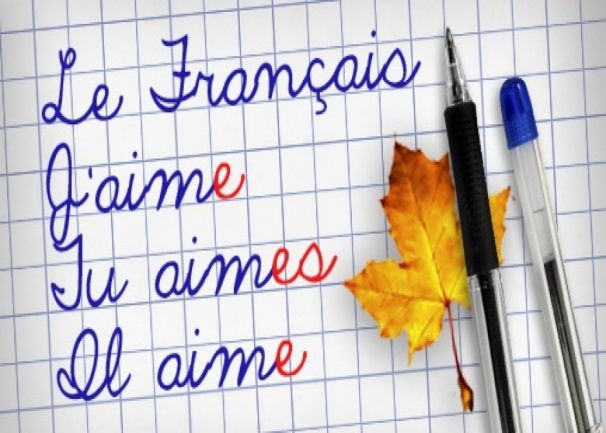 Le Français
J'aime
Tu aimes
Il aime